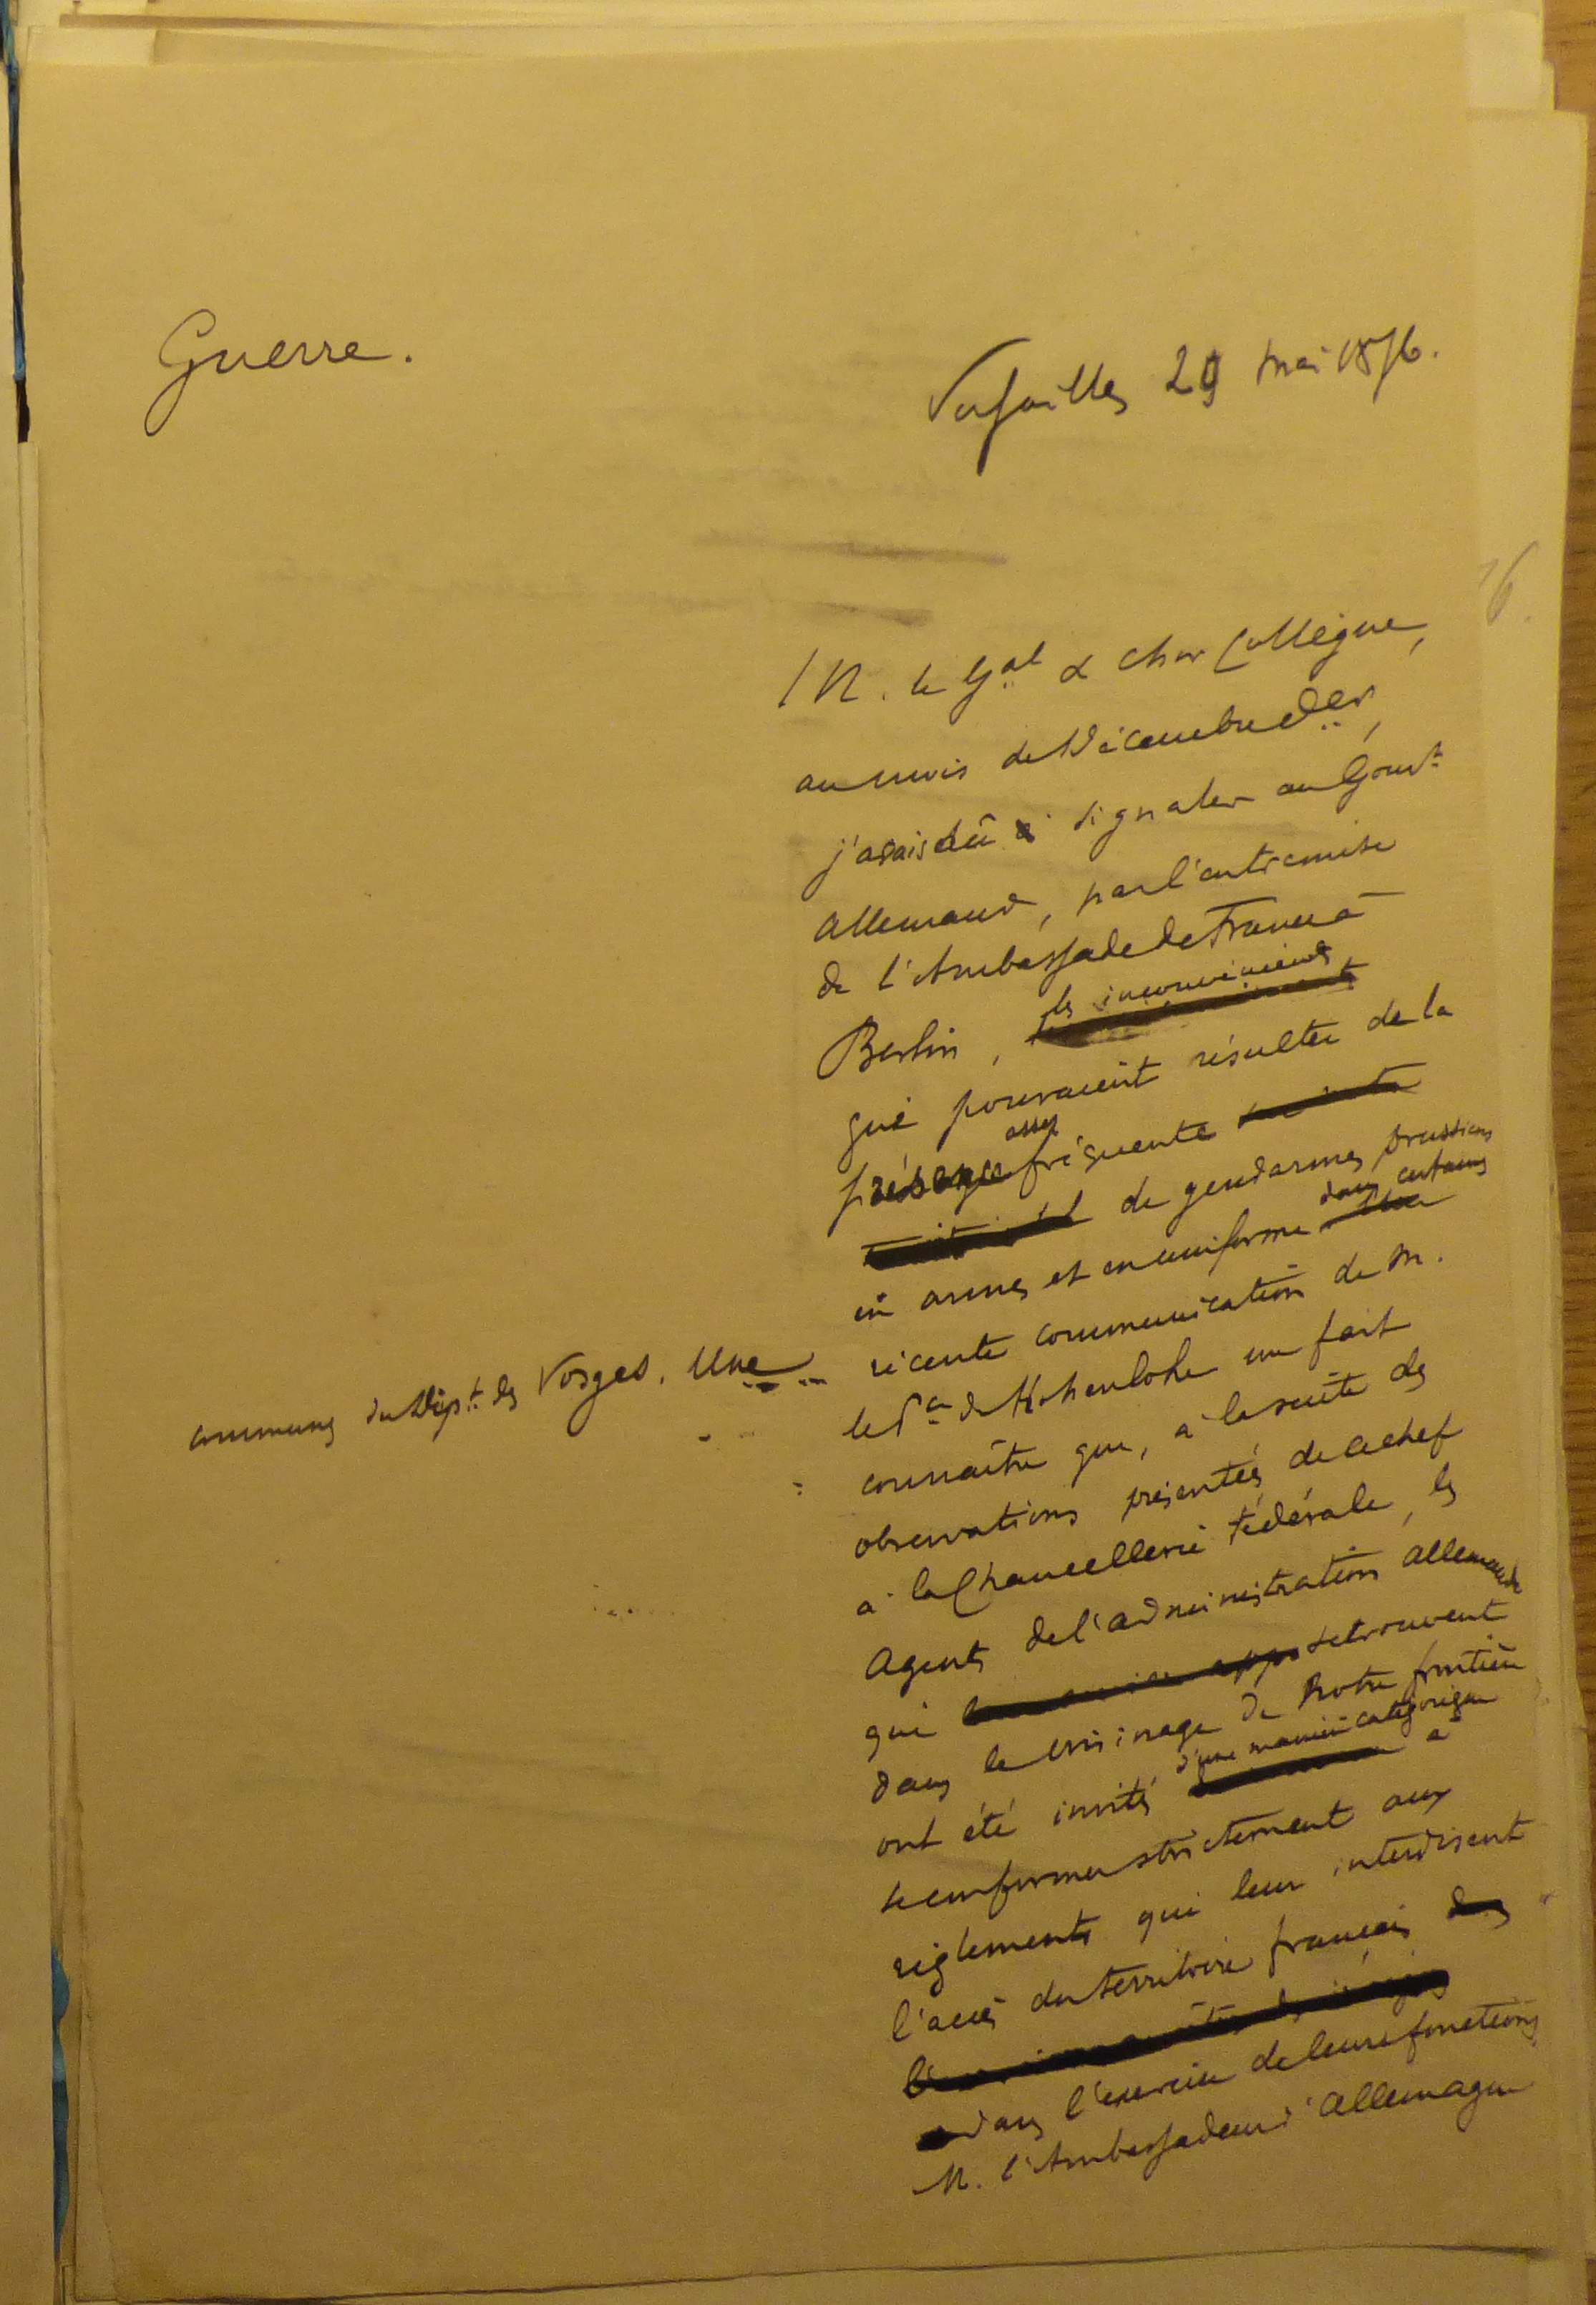 Guerre.
Versailles 29 mai 1876.
M. le Gal & cher Collègue,
au mois de Décembre der,
j'avais dû signaler au Gouvt
Allemand, par l'entremise
de l'Ambassade de France à
Berlin, les inconvénients
qui pouvaient résulter de la
présence assez fréquente
de gendarmes prussiens
en armes et en uniforme dans certaines
communes du Dépt des Vosges. Une
récente communication de M.
le Pce de Hohenlohe me fait
connaître que, à la suite des
observations présentées de ce chef
à la Chancellerie fédérale, les
Agents de l'administration allemande
qui se trouvent
dans le voisinage de notre frontière
ont été invités d'une manière catégorique à
se conformer strictement aux
règlements qui leur interdisent
l'accès du territoire français
dans l'exercice de leurs fonctions
M. l'Ambassadeur d'Allemagne